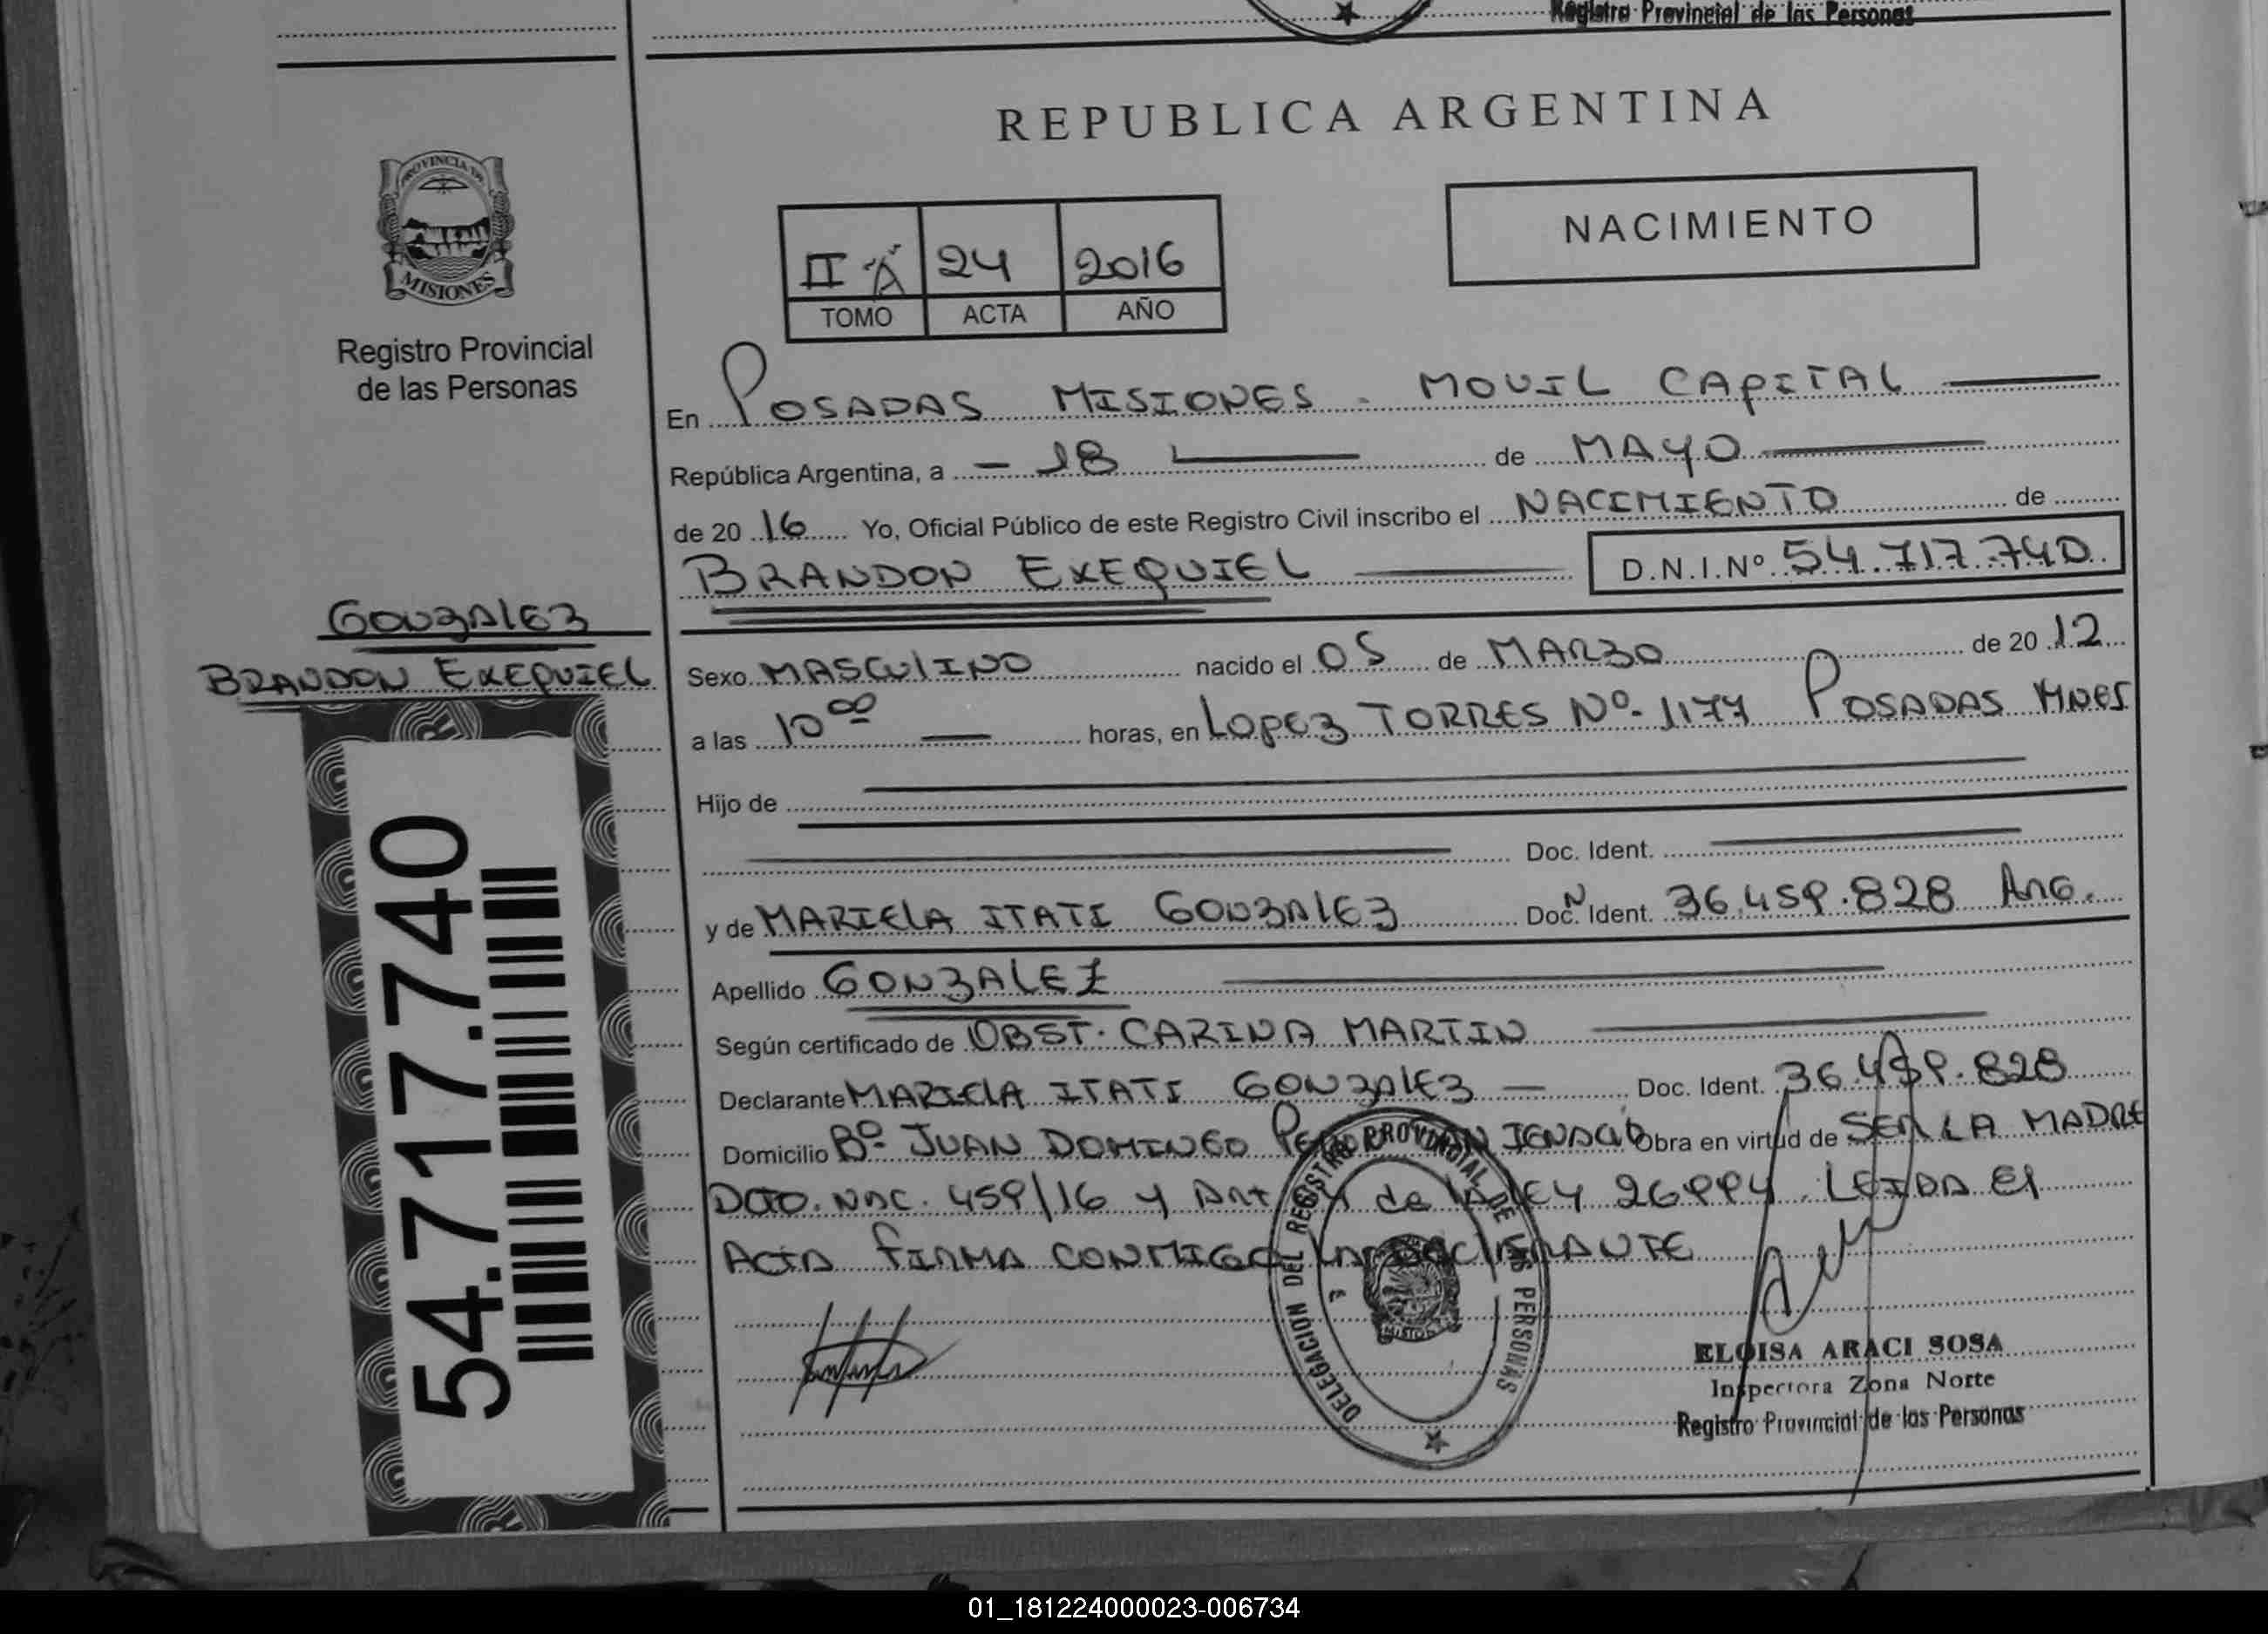 Registro Provincial de las Personas
REPUBLICA ARGENTINA
PROVINCIA DE
MISIONES
Registro Provincial
de las Personas
II A 24 2016
TOMO ACTA AÑO
NACIMIENTO
En POSADAS MISIONES - MOVIL CAPITAL
República Argentina, a 18 de MAYO
de 20 16 Yo, Oficial Público de este Registro Civil inscribo el NACIMIENTO de
BRANDON EXEQUIEL D.N.I.Nº 54.717.740
GONZALEZ
BRANDON EXEQUIEL
Sexo MASCULINO nacido el 05 de MARZO de 20 12
a las 10 00 horas, en LOPEZ TORRES Nº 1177 POSADAS MNES
Hijo de
Doc. Ident.
y de MARIELA ITATI GONZALEZ Doc. N Ident. 36.459.828 ARG.
Apellido GONZALEZ
Según certificado de OBST. CARINA MARTIN
Declarante MARIELA ITATI GONZALEZ Doc. Ident. 36.459.828
Domicilio Bº JUAN DOMINGO IGNACIO Obra en virtud de SER LA MADRE
DCTO. NAC. 459/16 Y ART de LA LEY 26994. LEIDA EL
ACTA FIRMA CONMIGO LA DECLARANTE
54.717.740
DELEGACIÓN DEL REGISTRO PROVINCIAL DE LAS PERSONAS
ELOISA ARACI SOSA
Inspectora Zona Norte
Registro Provincial de las Personas
01_181224000023-006734